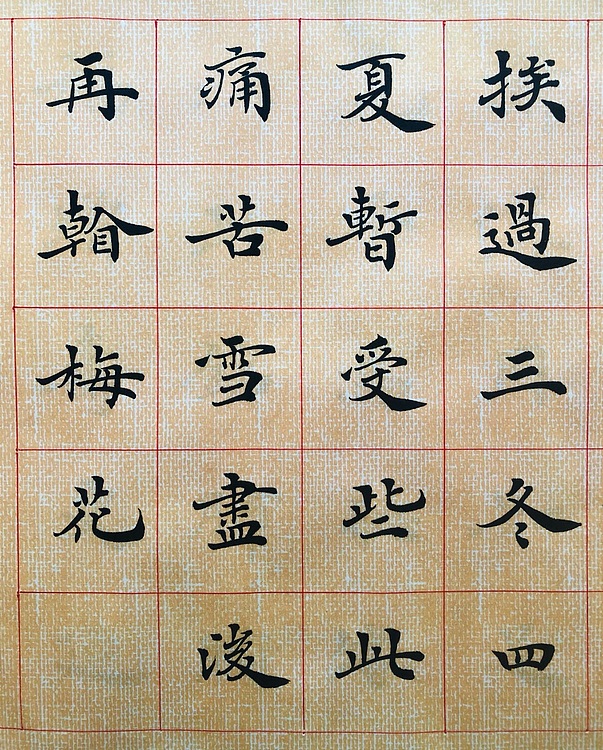 挨過三冬四
夏暫受些此
痛苦雪盡後
再梅花